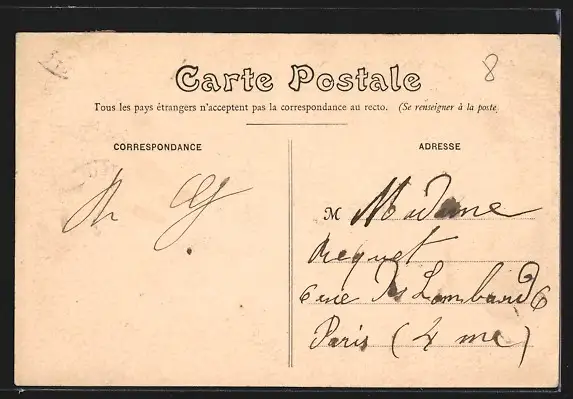 8
Carte Postale
Tous les pays étrangers n'acceptent pas la correspondance au recto. (Se renseigner à la poste)
CORRESPONDANCE
ADRESSE
M Madame
6 rue des Lombards 6
Paris (4 me)